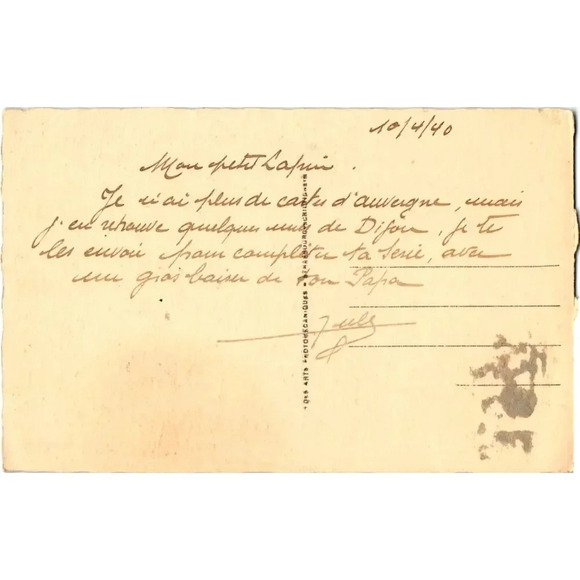 10/4/40
Mon petit Lapin.
Je n'ai plus de cartes d'auvergne, mais
j'en retrouve quelques unes de Dijon, je te
les envoie pour completer ta serie, avec
un gros baiser de ton Papa
DES ARTS PHOTOMÉCANIQUES